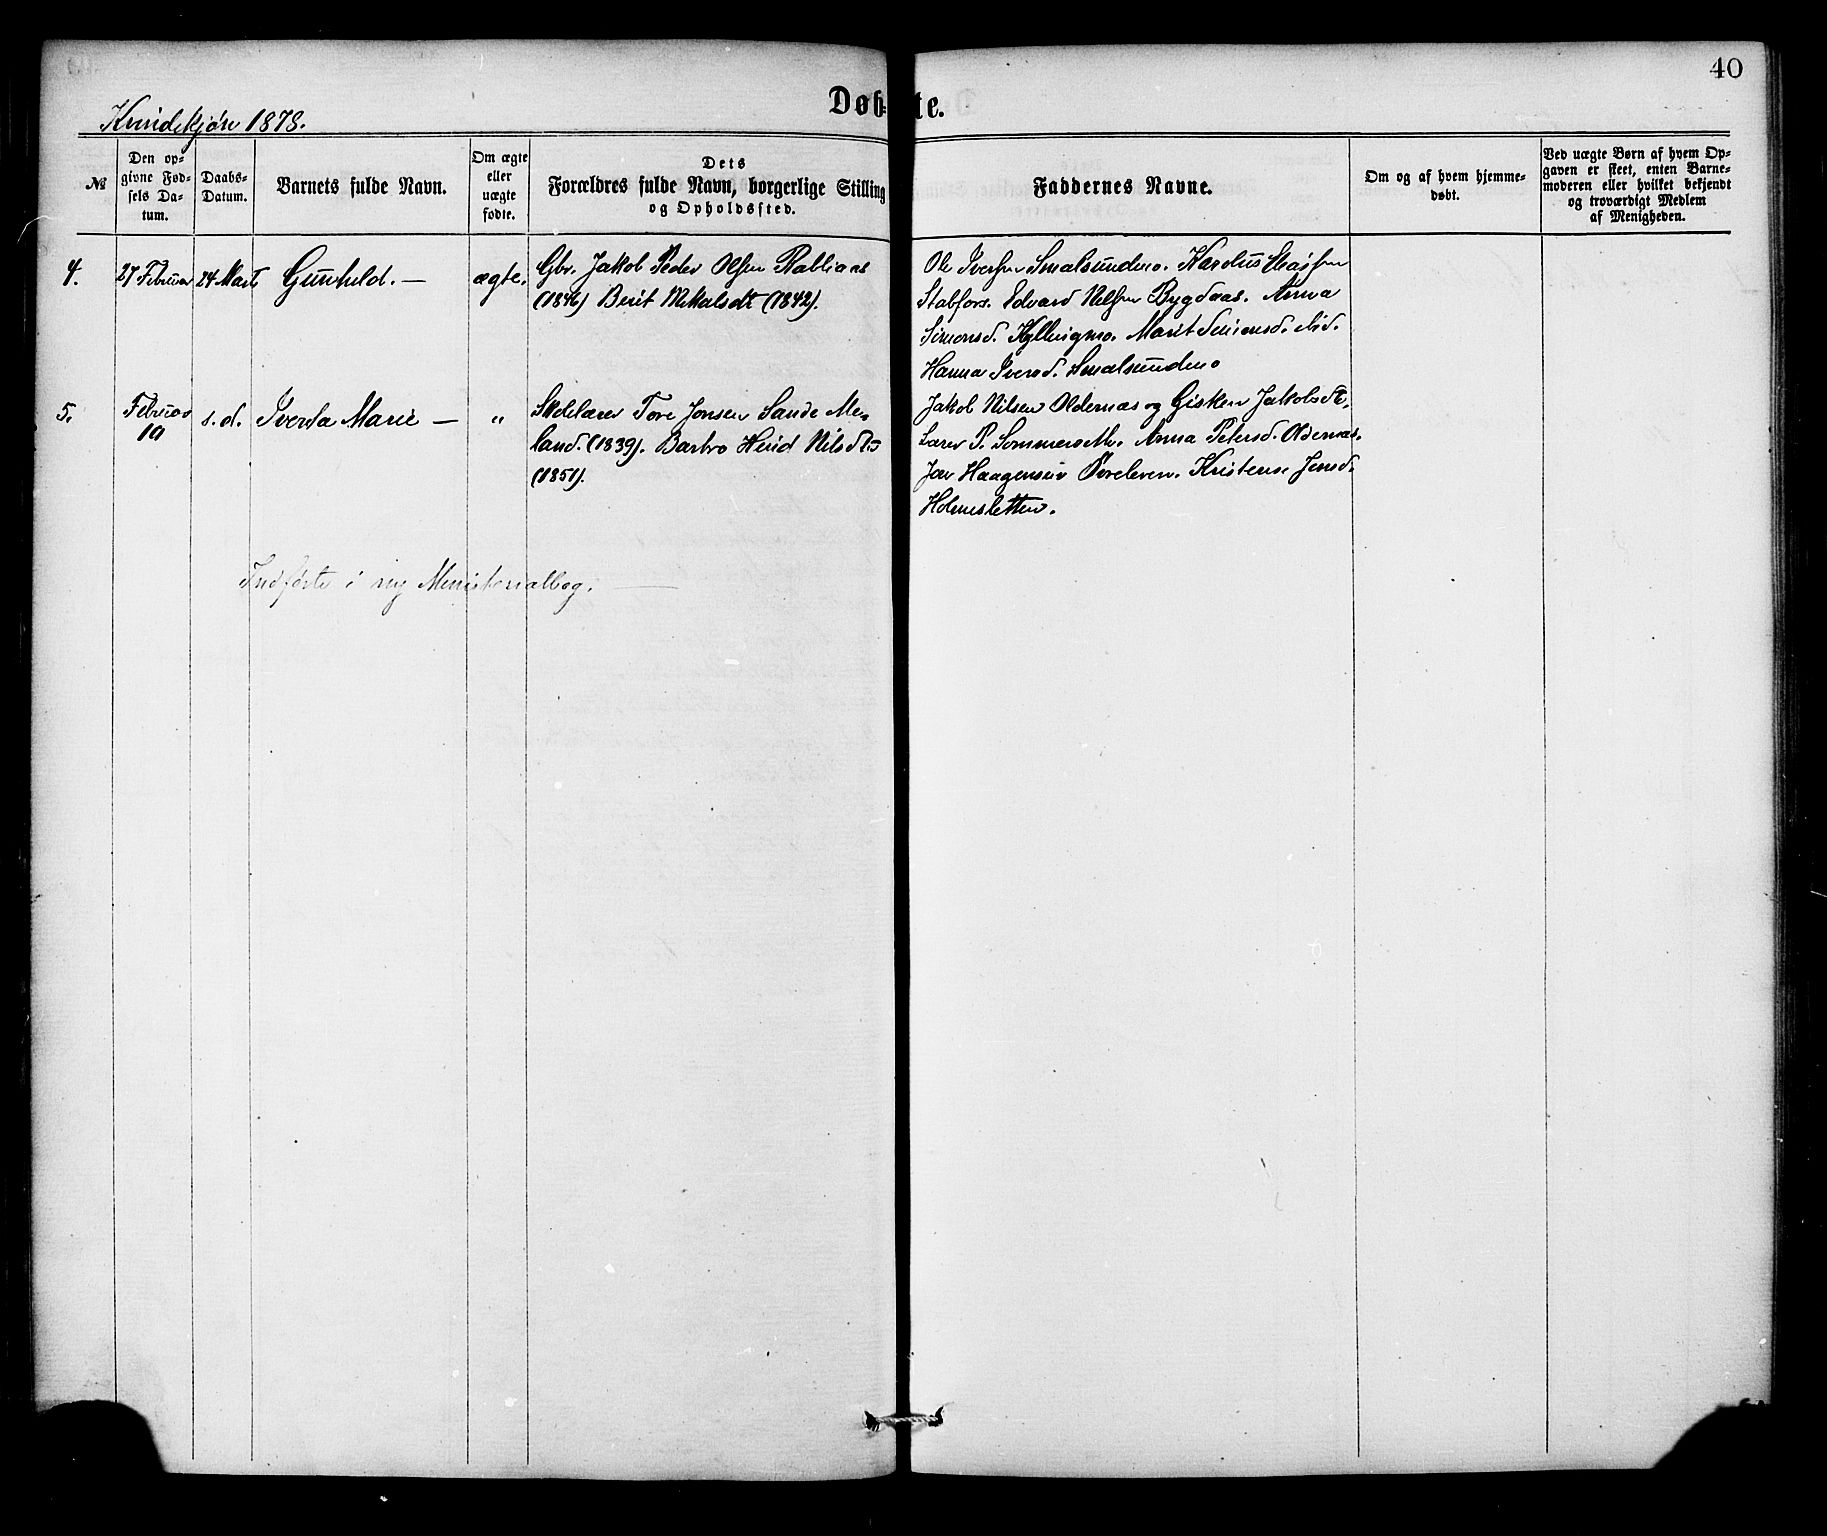 40
Døbte.
Kvindekjøn 1878.
№
Den opgivne Fødsels Datum.
Daabs-Datum.
Barnets fulde Navn.
Om ægte eller uægte fødte.
Dets Forældres fulde Navn, borgerlige Stilling og Opholdssted.
Faddernes Navne.
Om og af hvem hjemmedøbt.
Ved uægte Børn af hvem Opgaven er skeet, enten Barnemoderen eller hvilket bekjendt og troværdigt Medlem af Menigheden.
4.
27 Februar
24 Marts
Gunhild. —
ægte.
Gbr. Jakob Peder Olsen Rabliaas
(1846) Berit Mikalsdt (1842).
Ole Iversen Smalsundmo. Kardus
Stabfors. Edvard Nilsen Bygdaas. Anna
Simonsd. Kyllingmo. Marit Simonsd. ibid.
Hanna Iversd. Smalsundmo
5.
Februar
19
s. d.
Iverda Marie —
"
Skolelærer Tore Jonsen Sande Me-
land. (1839). Barbro Nilsdtr
(1851).
Jakob Nilsen Oldernæs og Gisken Jakobsdt.
Lærer P. Sommerseth. Anna Petersd. Oldernæs.
Jon Haagensen Kristense Jensd.
Holmsletten.
Indførte i ny Ministerialbog. —